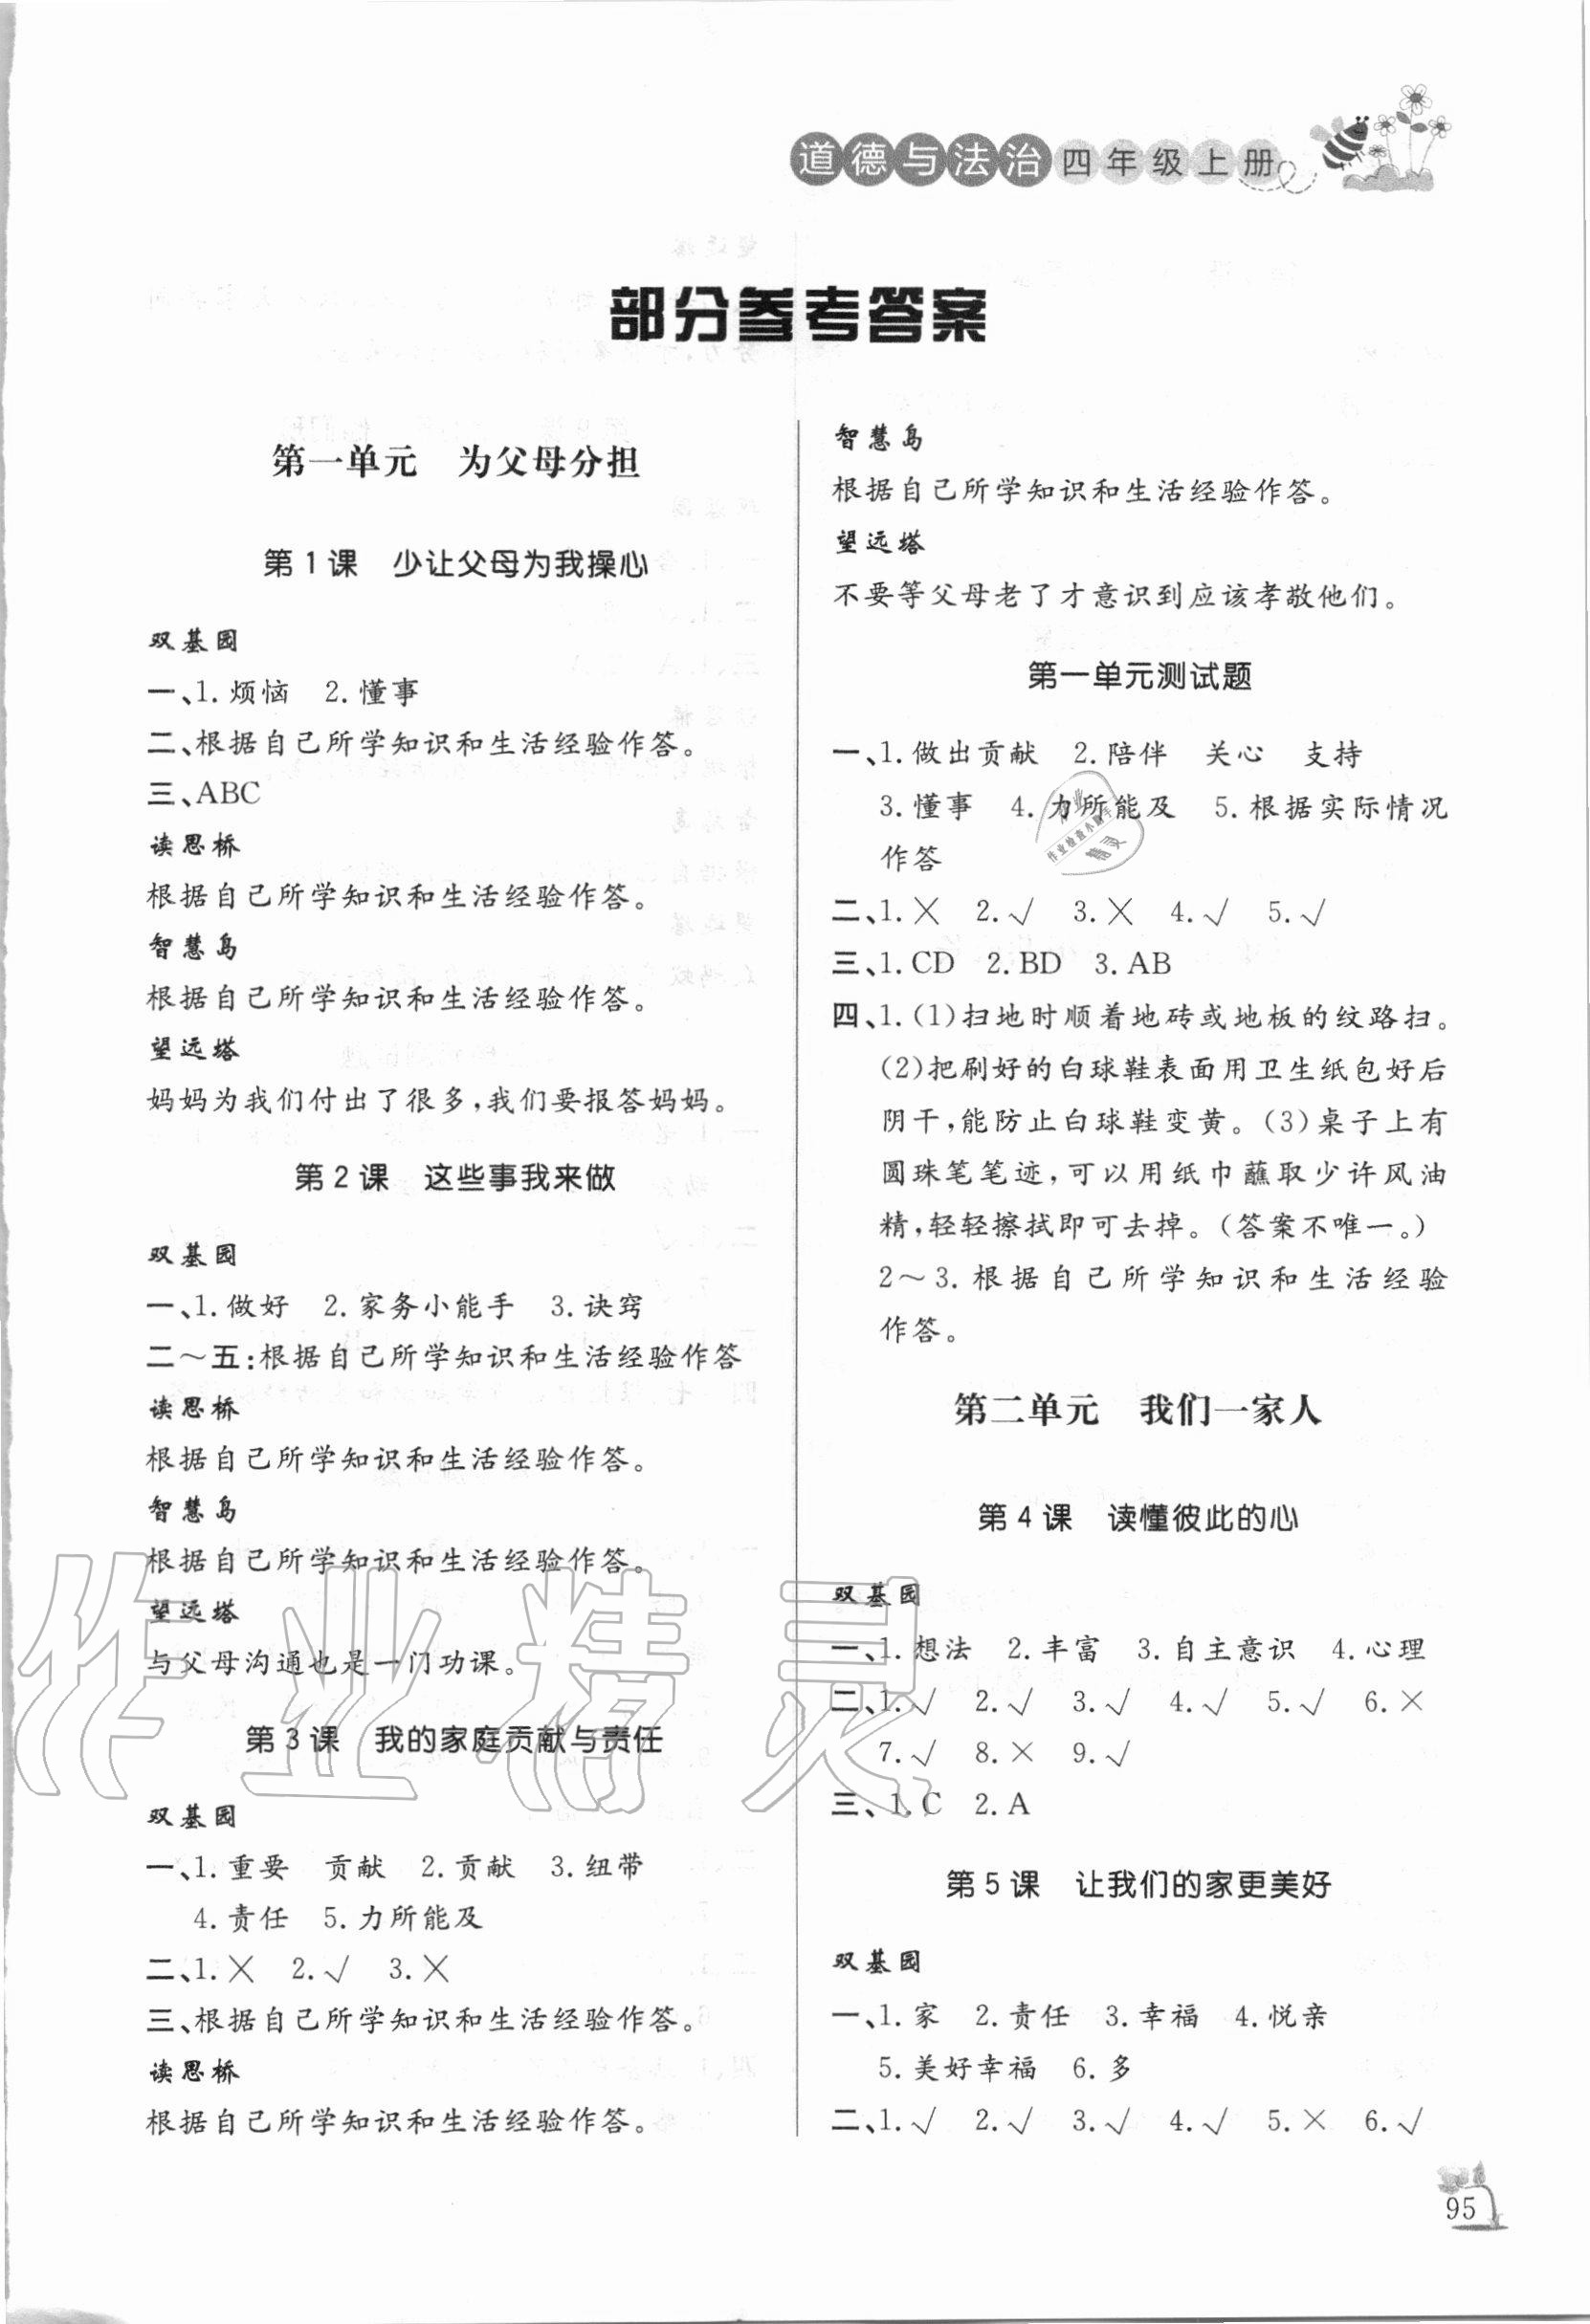 道德与法治四年级上册
部分参考答案
第一单元 为父母分担
第1课 少让父母为我操心
双基园
一、1.烦恼 2.懂事
二、根据自己所学知识和生活经验作答。
三、ABC
读思桥
根据自己所学知识和生活经验作答。
智慧岛
根据自己所学知识和生活经验作答。
望远塔
妈妈为我们付出了很多,我们要报答妈妈。
第2课 这些事我来做
双基园
一、1.做好 2.家务小能手 3.诀窍
二～五:根据自己所学知识和生活经验作答
读思桥
根据自己所学知识和生活经验作答。
智慧岛
根据自己所学知识和生活经验作答。
望远塔
与父母沟通也是一门功课。
第3课 我的家庭贡献与责任
双基园
一、1.重要 贡献 2.贡献 3.纽带
4.责任 5.力所能及
二、1.╳ 2.√ 3.╳
三、根据自己所学知识和生活经验作答。
读思桥
根据自己所学知识和生活经验作答。
智慧岛
根据自己所学知识和生活经验作答。
望远塔
不要等父母老了才意识到应该孝敬他们。
第一单元测试题
一、1.做出贡献 2.陪伴 关心 支持
3.懂事 4.力所能及 5.根据实际情况
作答
二、1.╳ 2.√ 3.╳ 4.√ 5.√
三、1.CD 2.BD 3.AB
四、1.(1)扫地时顺着地砖或地板的纹路扫。
(2)把刷好的白球鞋表面用卫生纸包好后
阴干,能防止白球鞋变黄。(3)桌子上有
圆珠笔笔迹,可以用纸巾蘸取少许风油
精,轻轻擦拭即可去掉。(答案不唯一。)
2～3.根据自己所学知识和生活经验
作答。
第二单元 我们一家人
第4课 读懂彼此的心
双基园
一、1.想法 2.丰富 3.自主意识 4.心理
二、1.√ 2.√ 3.√ 4.√ 5.√ 6.×
7.√ 8.× 9.√
三、1.C 2.A
第5课 让我们的家更美好
双基园
一、1.家 2.责任 3.幸福 4.悦亲
5.美好幸福 6.多
二、1.√ 2.√ 3.√ 4.√ 5.× 6.√
95
作业精灵